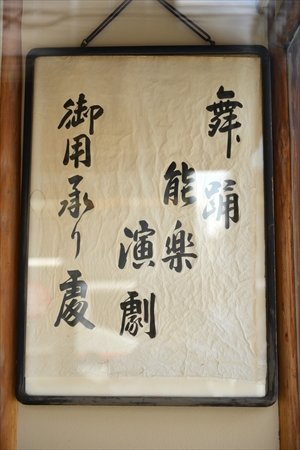 舞踊
能楽
演劇
御用承り處